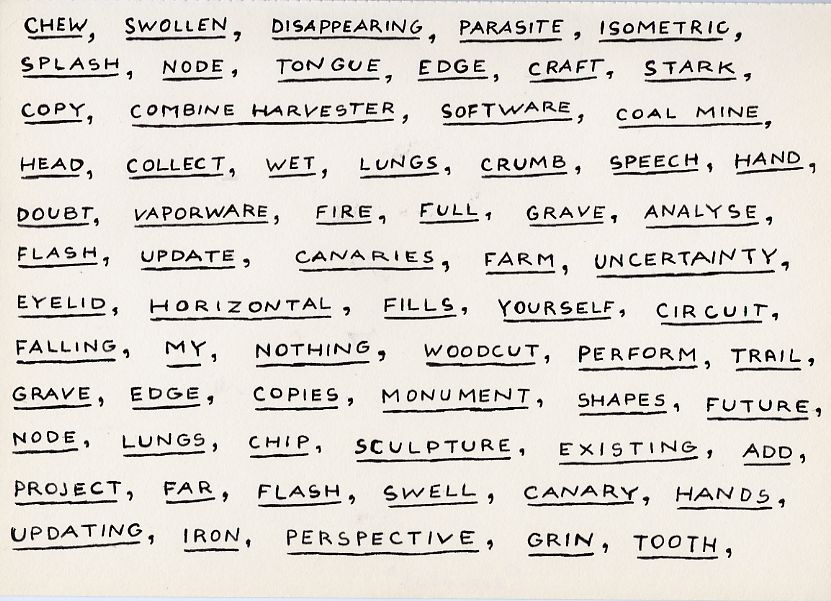 CHEW, SWOLLEN, DISAPPEARING, PARASITE, ISOMETRIC,
SPLASH, NODE, TONGUE, EDGE, CRAFT, STARK,
COPY, COMBINE HARVESTER, SOFTWARE, COAL MINE,
HEAD, COLLECT, WET, LUNGS, CRUMB, SPEECH, HAND,
DOUBT, VAPORWARE, FIRE, FULL, GRAVE, ANALYSE,
FLASH, UPDATE, CANARIES, FARM, UNCERTAINTY,
EYELID, HORIZONTAL, FILLS, YOURSELF, CIRCUIT,
FALLING, MY, NOTHING, WOODCUT, PERFORM, TRAIL,
GRAVE, EDGE, COPIES, MONUMENT, SHAPES, FUTURE,
NODE, LUNGS, CHIP, SCULPTURE, EXISTING, ADD,
PROJECT, FAR, FLASH, SWELL, CANARY, HANDS,
UPDATING, IRON, PERSPECTIVE, GRIN, TOOTH,